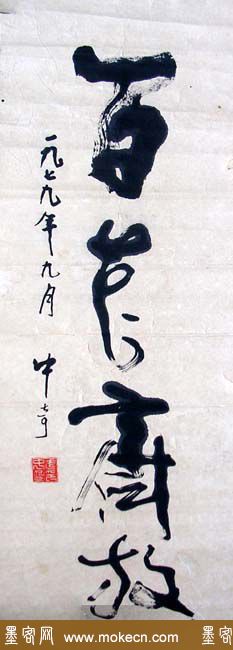 百花齊放
一九七九年九月
墨客网 www.mokecn.com 墨客网